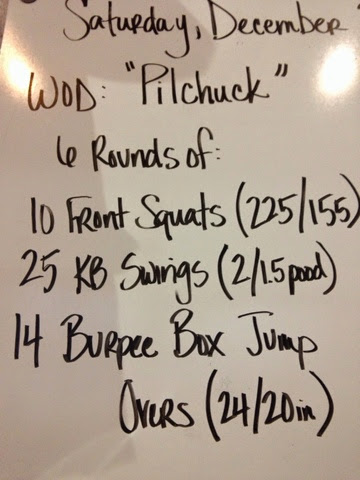 Saturday, December
WOD: "Pilchuck"
6 Rounds of:
10 Front Squats (225/155)
25 KB Swings (2/1.5pood)
14 Burpee Box Jump
Overs (24/20in)